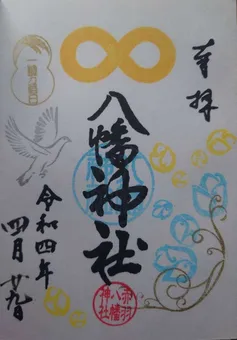 奉拝
八幡神社
令和四年
四月廿九日
一粒万倍日
赤羽
八幡
神社